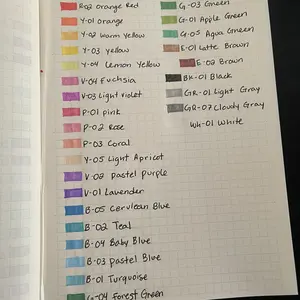 R-02 Orange Red
Y-01 Orange
Y-02 Warm Yellow
Y-03 Yellow
Y-04 Lemon Yellow
V-04 Fuchsia
V-03 Light Violet
P-01 Pink
P-02 Rose
P-03 Coral
Y-05 Light Apricot
V-02 Pastel Purple
V-01 Lavender
B-05 Cerulean Blue
B-02 Teal
B-04 Baby Blue
B-03 Pastel Blue
B-01 Turquoise
G-04 Forest Green
G-03 Green
G-01 Apple Green
G-05 Aqua Green
E-01 Latte Brown
E-02 Brown
BK-01 Black
GR-01 Light Gray
GR-02 Cloudy Gray
WH-01 White